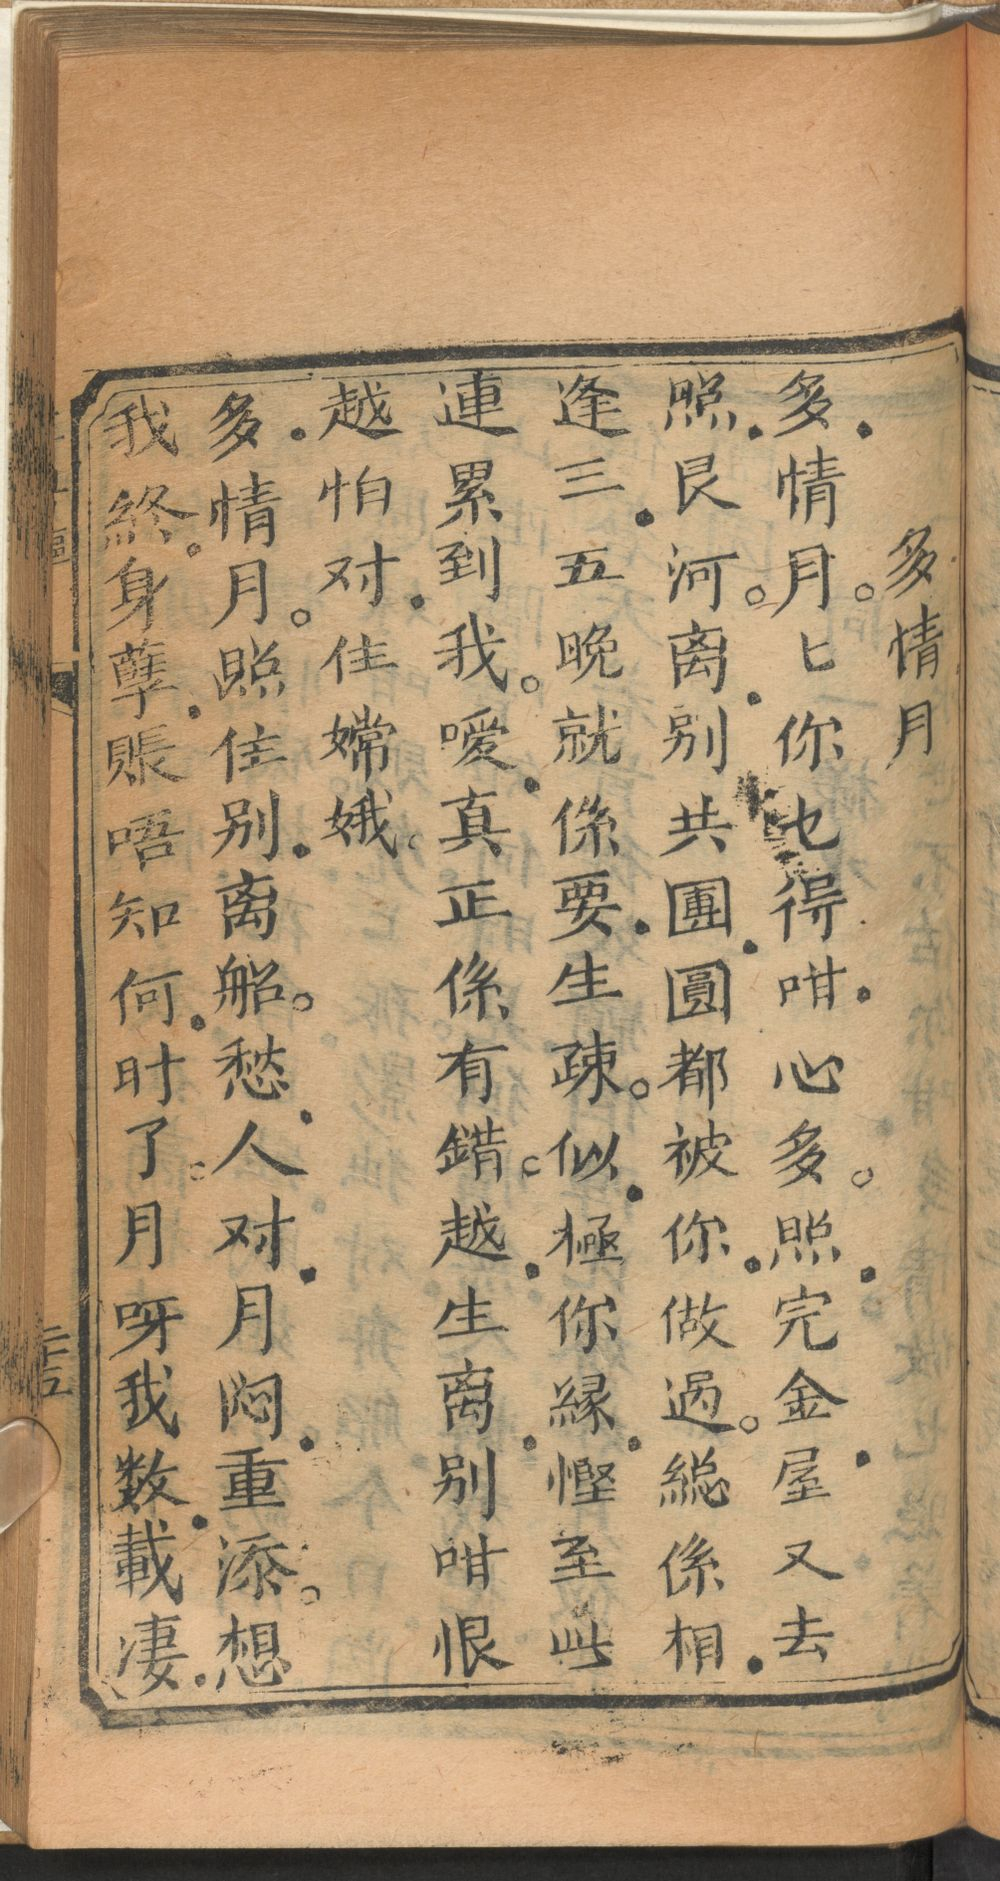 多情月
多情月匕你乜得咁心多。照完金屋又去
照艮河。离别共團圓都被你做過。総係相
逢三五晚就係要生疎。似極你縁慳至此
連累到我。噯真正係有錯。越生离别咁恨
越怕对住嫦娥。
多情月。照住别离船。愁人对月悶重添。想
我終身孽賬唔知何时了。月呀我数載凄
二十五